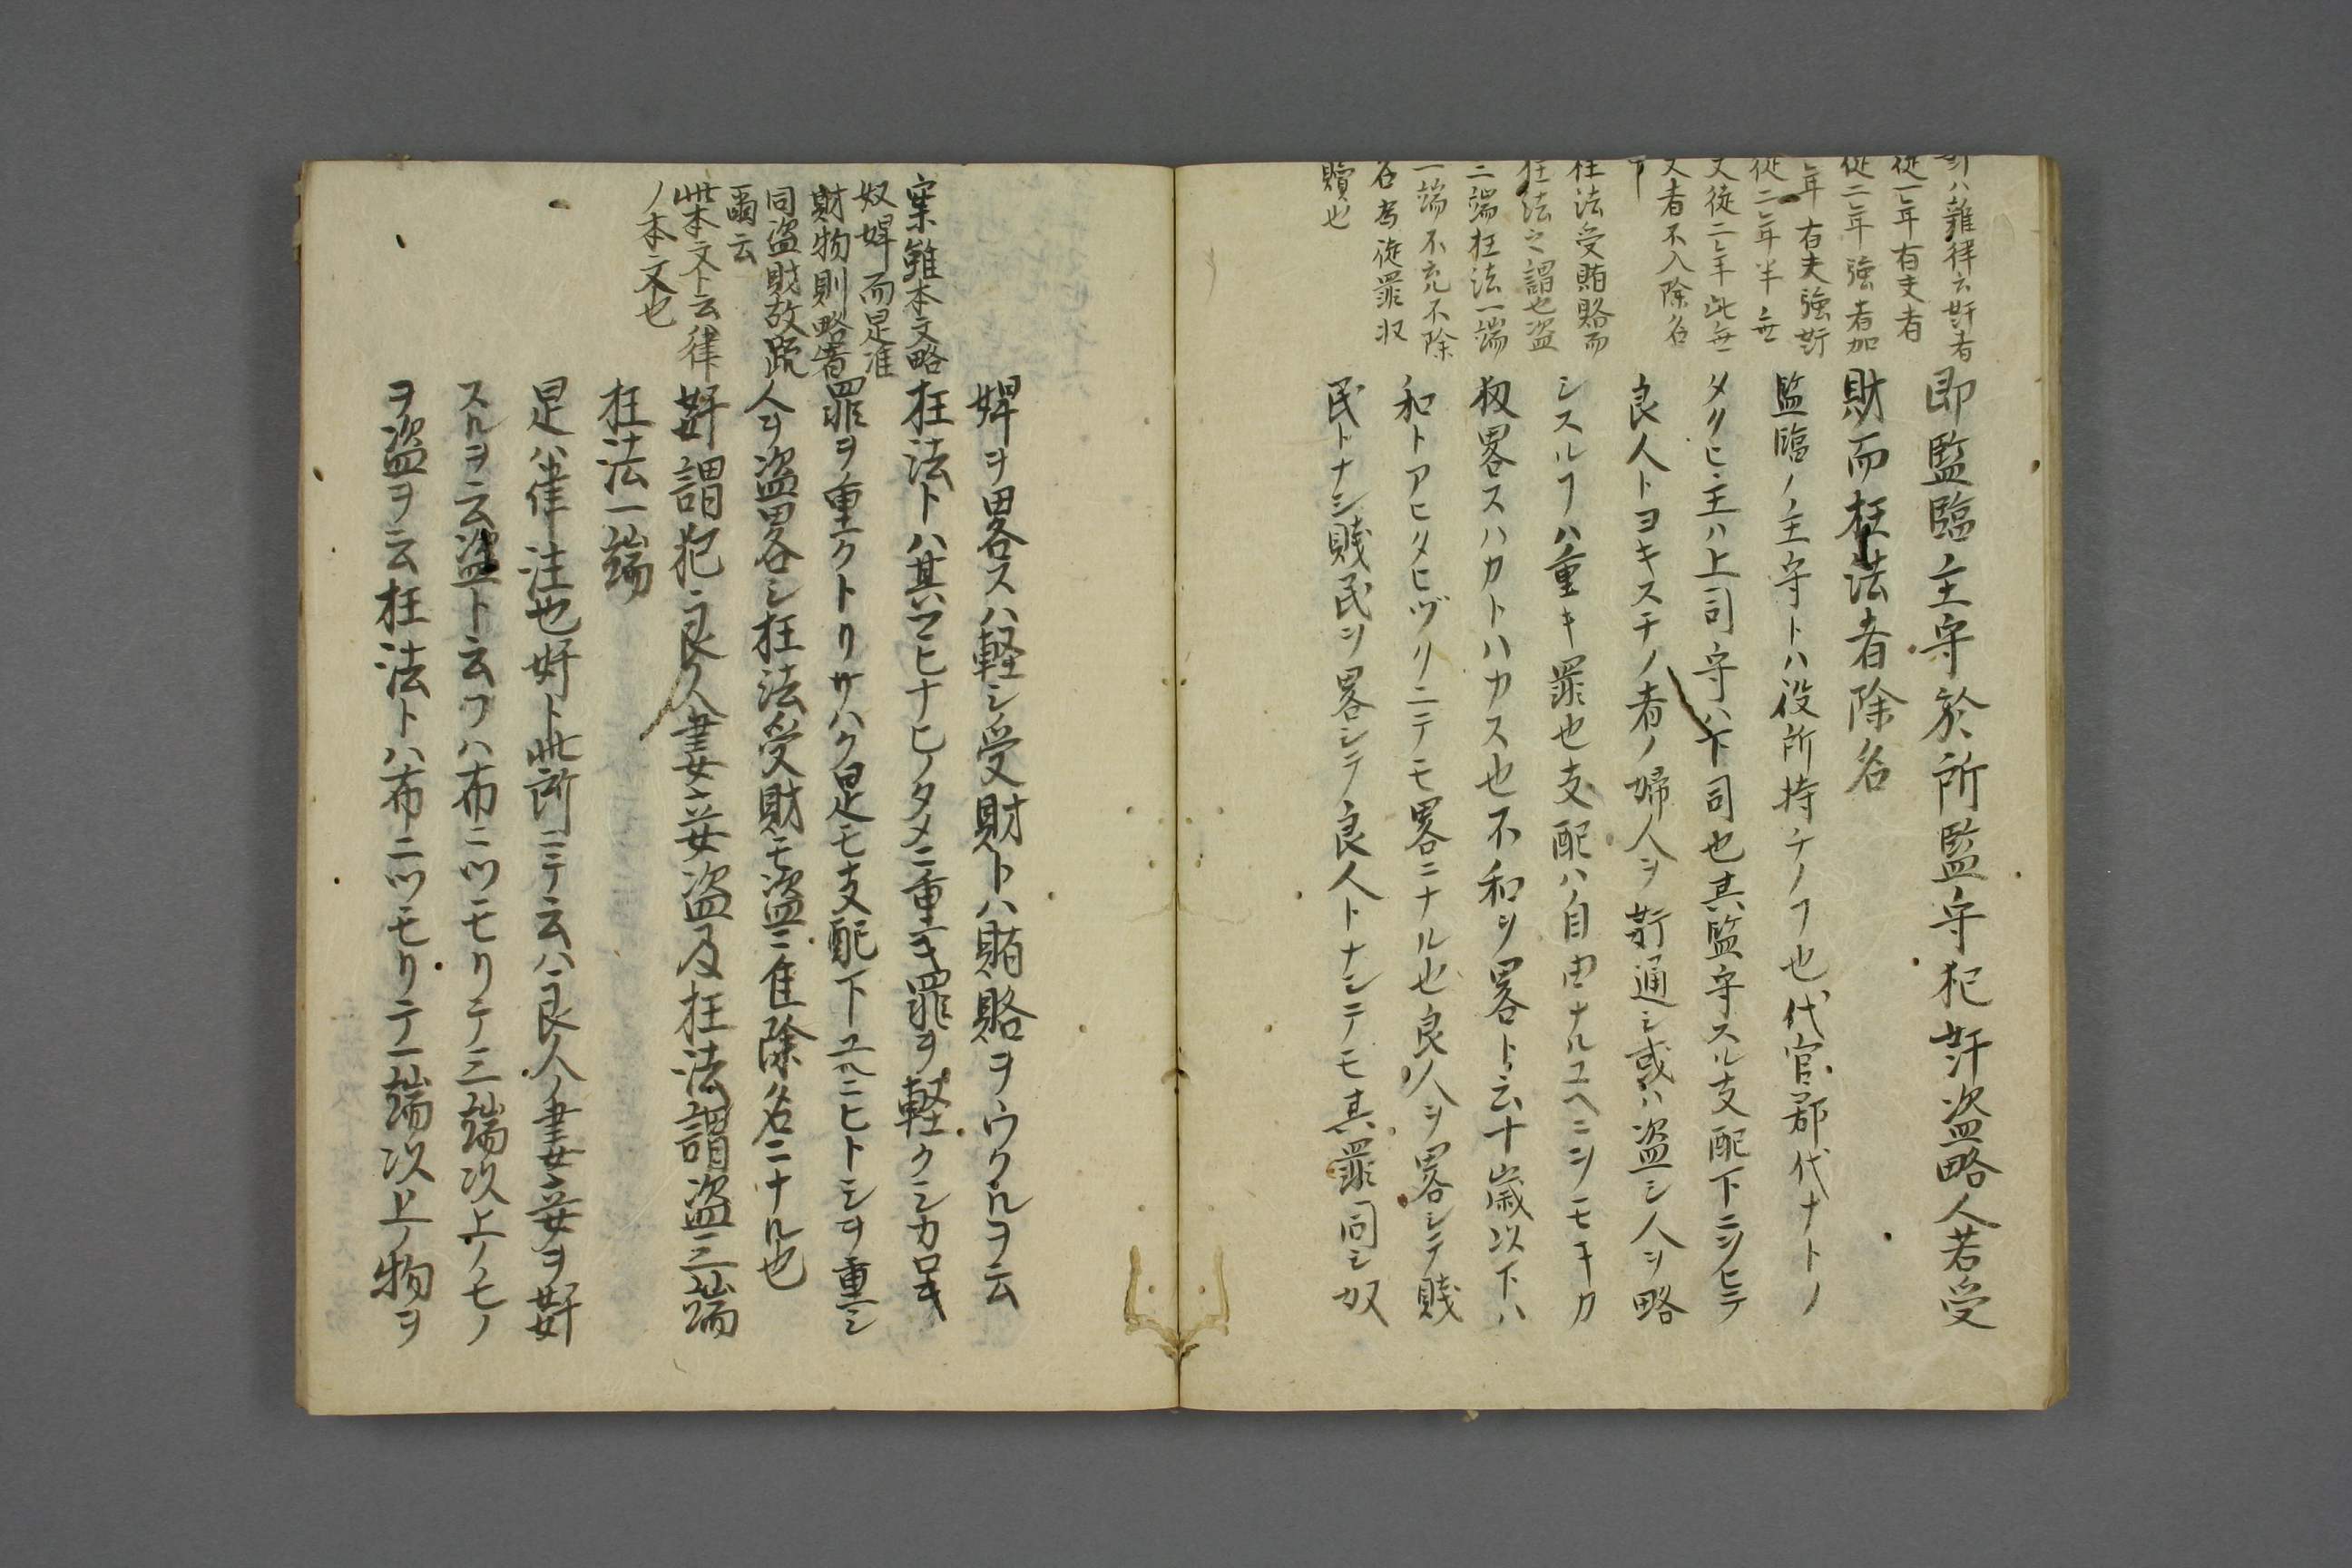 奸ハ雜律云奸者
徒一年有夫者
徒二年強者加
一年有夫強奸
徒二年半 無
夫徒二年此無
夫者不入除名
枉法受賄賂而
枉法之謂也盗
三端枉法一端
一端不充不除
名為徒罪収
贖也
即監臨主守於所監守犯奸盗略人若受
財而枉法者除名
監臨ノ主守トハ役所持チノヿ也代官郡代ナトノ
タクヒ主ハ上司守ハ下司也其監守スル支配下ニシヒテ
良人トヨキスチノ者ノ婦人ヲ奸通シ或ハ盗シ人ヲ略
シスルヿハ重キ罪也支配ハ自由ナルユヘニシモキカ
扨畧スハカトハカス也不和ヲ畧ト云十歳以下ハ
和トアヒタヒヅクニテモ畧ニナル也良人ヲ畧シテ賤
民トナシ賤民ヲ畧シテ良人トナシテモ其罪同シ奴
案雖本文略
奴婢而是准
財物則略者
同盗財故疏
爾云
此本文ト云律
ノ本文也
婢ヲ畧スハ軽シ受財トハ賄賂ヲウクルヲ云
枉法トハ其マヒナヒノタメニ重キ罪ヲ軽クシカロキ
罪ヲ重クトリサハク是モ支配下ユヘニヒトシヲ重シ
人ヲ盗畧シ枉法受財モ盗ニ准除名ニナル也
奸謂犯良人妻妾盗及枉法謂盗三端
枉法一端
是ハ律注也奸ト此所ニテ云ハ良人ノ妻妾ヲ奸
スルヲ云盗ト云フハ布ニツモリテ三端以上ノモノ
ヲ盗ヲ云枉法トハ布ニツモリテ一端以上ノ物ヲ